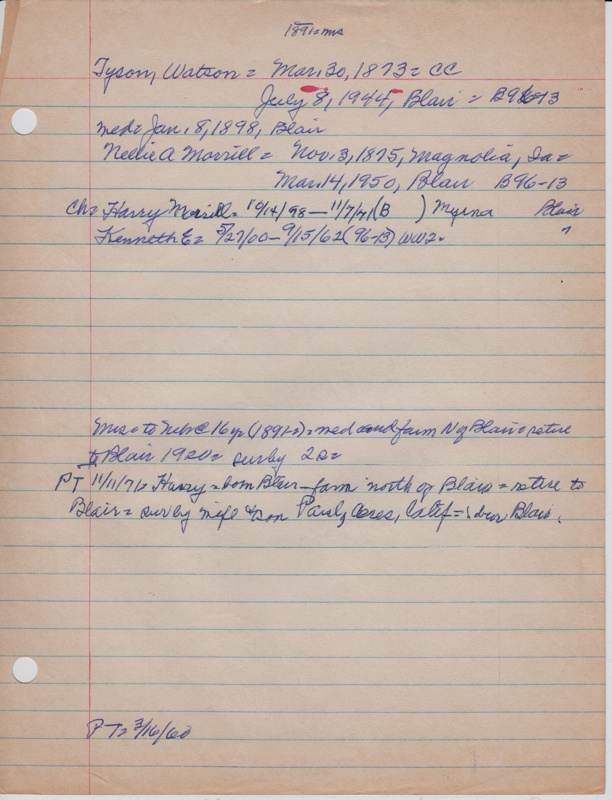 1891=ms
Tyson, Watson = Mar. 30, 1873 = CC
July 8, 1944, Blair = B96-13
med = Jan. 8, 1898, Blair
Nellie A Morrill = Nov. 3, 1875, Magnolia, Ia =
Mar. 14, 1950, Blair B96-13
Ch = Harry Morrill = 10/14/98 — 11/7/71 (B ) Myrna Blair
Kenneth E = 5/27/00 — 9/15/62 (96-13) WW2. "
Mrs = to Neb @ 16 yr (1891-2) = med and farm N of Blair = retire
to Blair 1920 = surby 2s =
PT 11/11/71 = Harry = born Blair - farm north of Blair = retire to
Blair = surby wife & son Paul, Ceres, Calif = Blair.
PT = 3/16/60